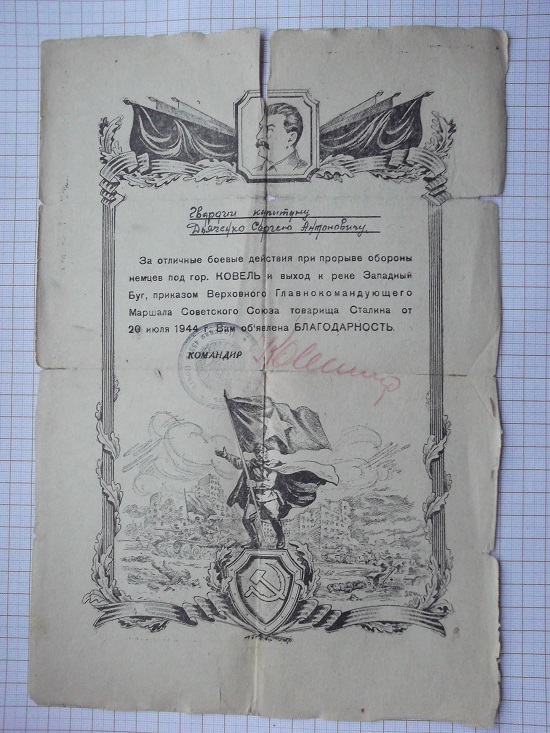 Гвардии капитану
Дьяченко Сергею Антоновичу
За отличные боевые действия при прорыве обороны
немцев под гор. КОВЕЛЬ и выход к реке Западный
Буг, приказом Верховного Главнокомандующего
Маршала Советского Союза товарища Сталина от
20 июля 1944 г. Вам об'явлена БЛАГОДАРНОСТЬ.
КОМАНДИР